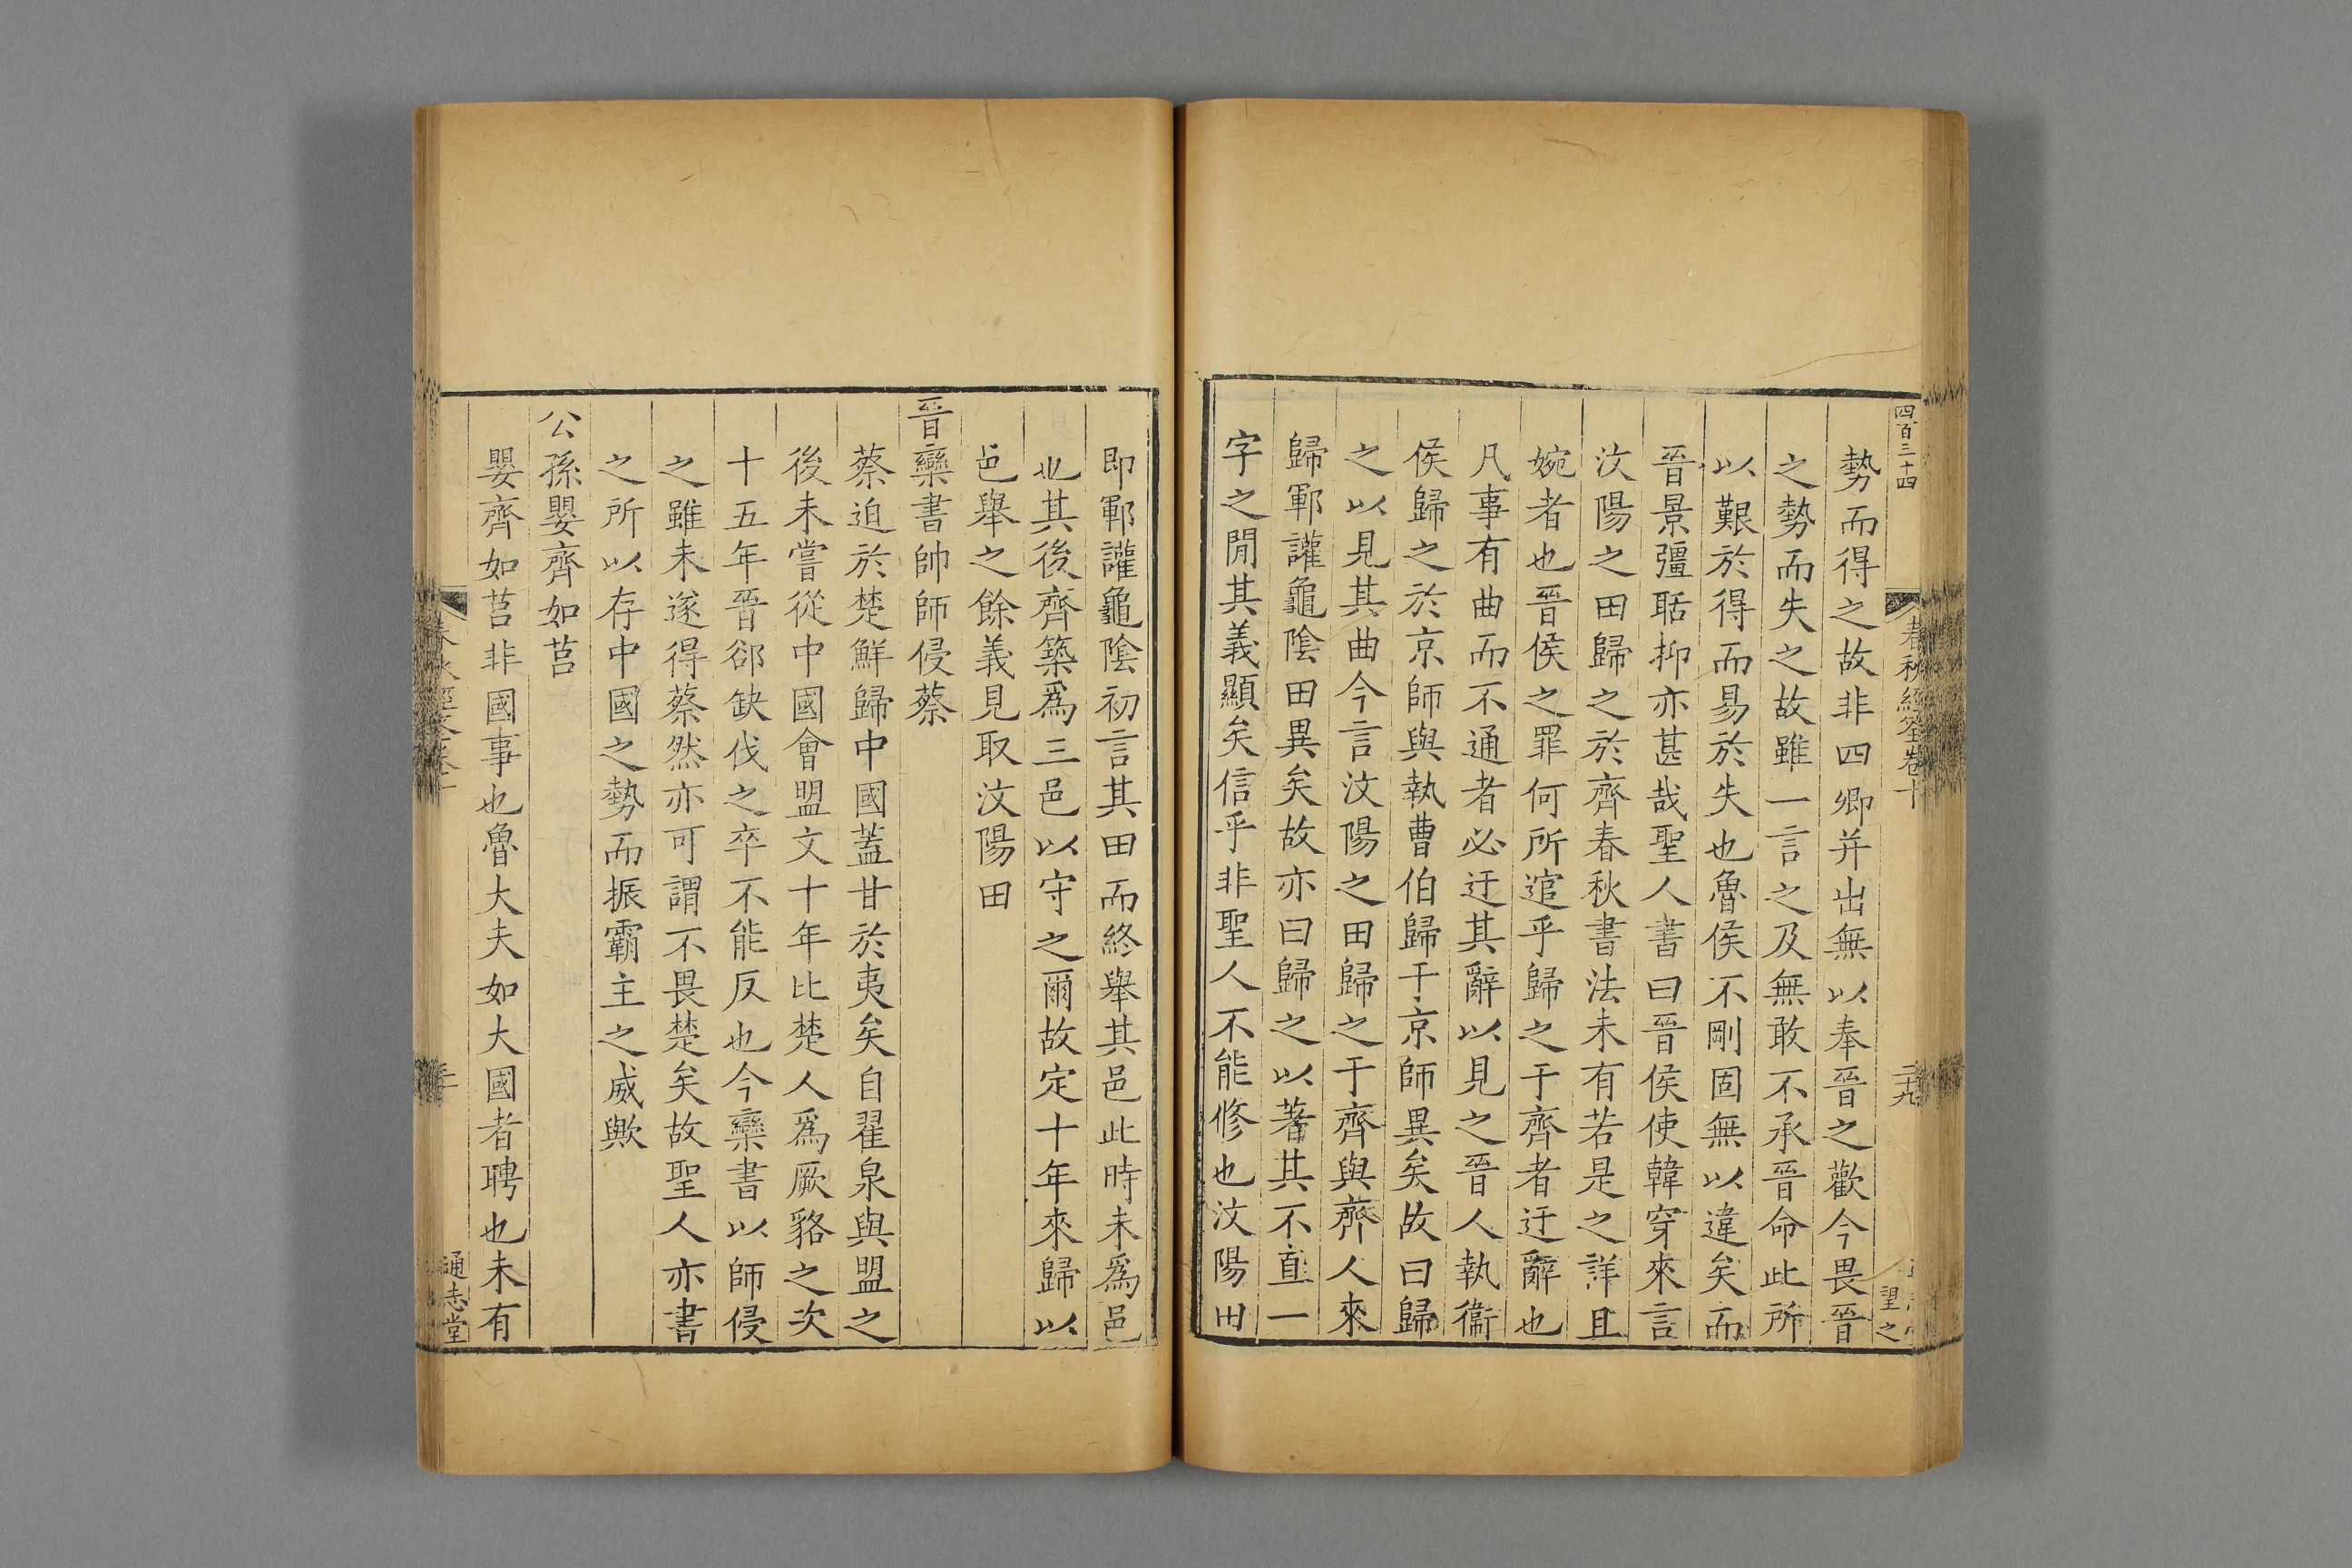 四百三十四
春秋經筌卷十
二十九
望之
勢而得之故非四卿并出無以奉晉之歡今畏晉
之勢而失之故雖一言之及無敢不承晉命此所
以艱於得而易於失也魯侯不剛固無以違矣而
晉景彊聒抑亦甚哉聖人書曰晉侯使韓穿來言
汶陽之田歸之於齊春秋書法未有若是之詳且
婉者也晉侯之罪何所逭乎歸之于齊者迂辭也
凡事有曲而不通者必迂其辭以見之晉人執衞
侯歸之於京師與執曹伯歸于京師異矣故曰歸
之以見其曲今言汶陽之田歸之于齊與齊人來
歸鄆讙龜陰田異矣故亦曰歸之以著其不直一
字之閒其義顯矣信乎非聖人不能修也汶陽田
即鄆讙龜陰初言其田而終舉其邑此時未爲邑
也其後齊築爲三邑以守之爾故定十年來歸以
邑舉之餘義見取汶陽田
晉欒書帥師侵蔡
蔡迫於楚鮮歸中國蓋甘於夷矣自翟泉與盟之
後未嘗從中國會盟文十年比楚人爲厥貉之次
十五年晉郤缺伐之卒不能反也今欒書以師侵
之雖未遂得蔡然亦可謂不畏楚矣故聖人亦書
之所以存中國之勢而振霸主之威歟
公孫嬰齊如莒
嬰齊如莒非國事也魯大夫如大國者聘也未有
通志堂